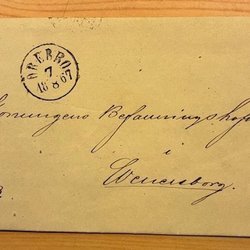 ÖREBRO
7
18 8 67
Konungens Befallningshafv
i
Wenersborg.